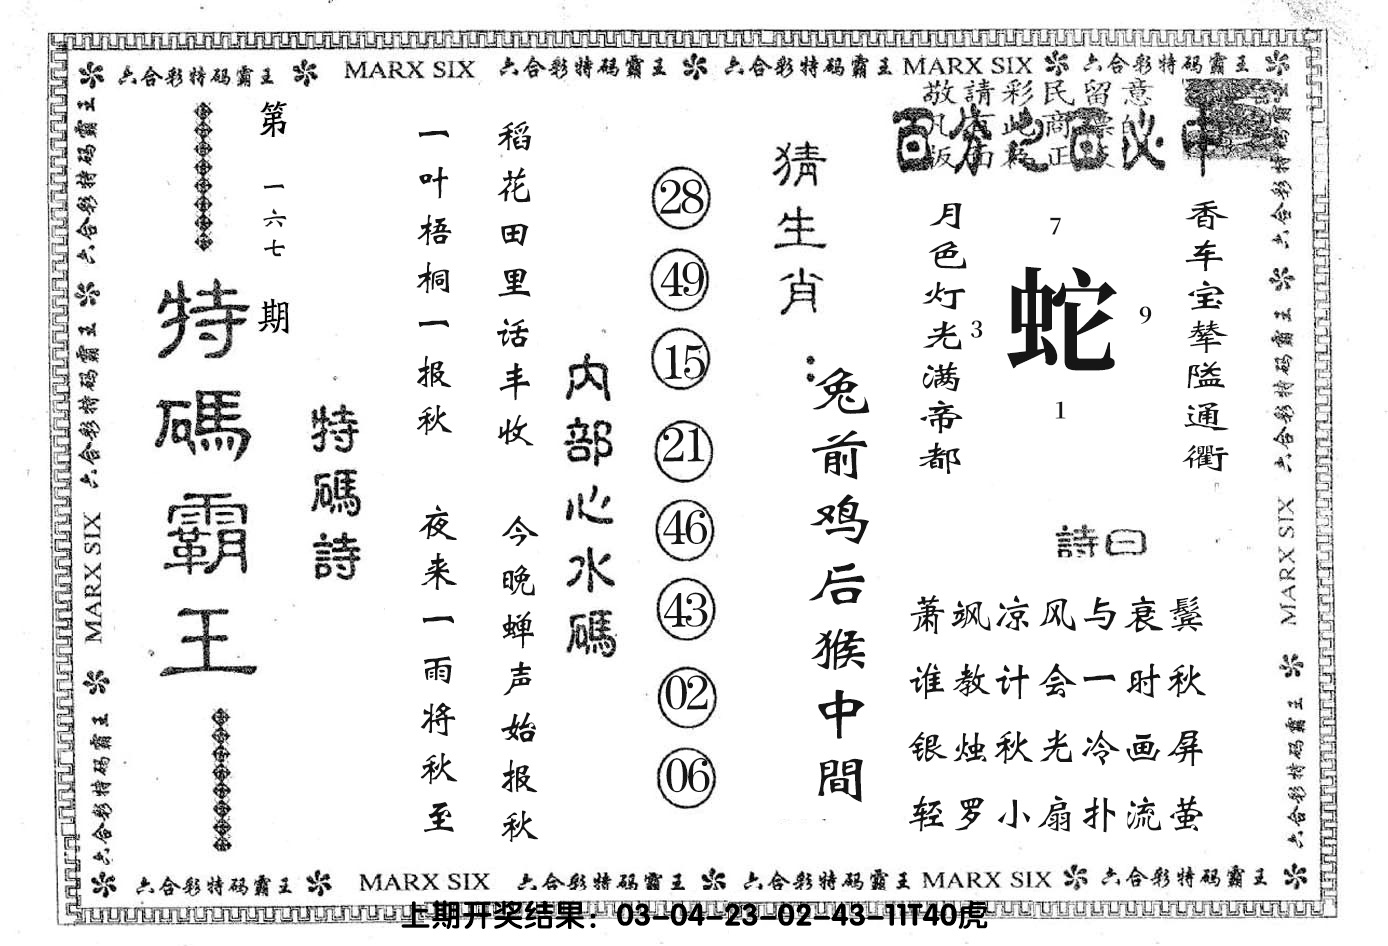 六合彩特码霸王 MARX SIX 六合彩特码霸王 六合彩特码霸王 MARX SIX 六合彩特码霸王
敬請彩民留意
百分之百必中
香车宝辇隘通衢
月色灯光满帝都
7
3
蛇
9
1
詩曰
萧飒凉风与衰鬓
谁教计会一时秋
银烛秋光冷画屏
轻罗小扇扑流萤
猜生肖：
兔前鸡后猴中間
28
49
15
21
46
43
02
06
内部心水碼
稻花田里话丰收 今晚蝉声始报秋
一叶梧桐一报秋 夜来一雨将秋至
特碼詩
第一六七期
特碼霸王
六合彩特码霸王 六合彩特码霸王 MARX SIX 六合彩特码霸王
六合彩特码霸王 六合彩特码霸王 MARX SIX 六合彩特码霸王
六合彩特码霸王 MARX SIX 六合彩特码霸王 六合彩特码霸王 MARX SIX 六合彩特码霸王
上期开奖结果：03-04-23-02-43-11T40虎